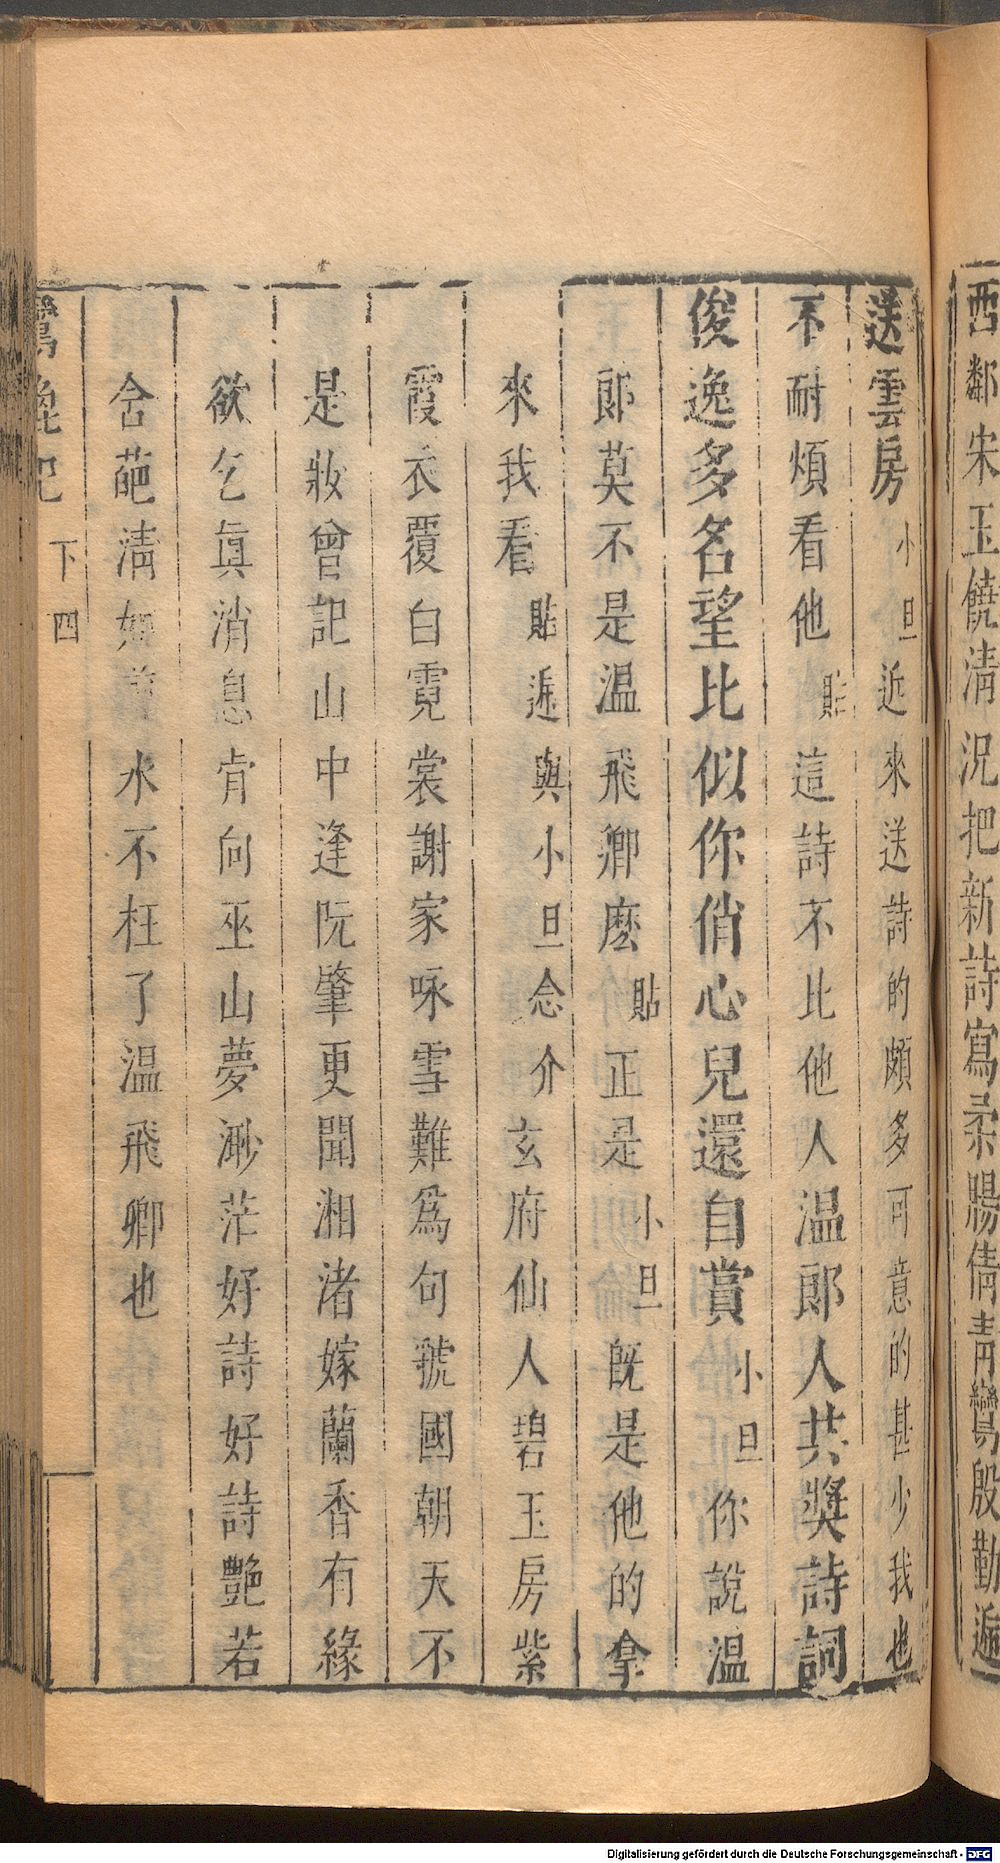 西鄰宋玉饒淸況把新詩寫柔腸倩靑鸞殷勤遞
送雲房小旦近來送詩的頗多可意的甚少我也
不耐煩看他貼這詩不比他人温郞人共奬詩詞
俊逸多名望比似你俏心兒還自賞小旦你說温
郞莫不是温飛卿麽貼正是小旦旣是他的拿
來我看貼遞與小旦念介玄府仙人碧玉房紫
霞衣覆白霓裳謝家咏雪難爲句虢國朝天不
是妝曾記山中逢阮肇更聞湘渚嫁蘭香有緣
欲乞眞消息肯向巫山夢渺茫好詩好詩艷若
含葩淸如水不枉了温飛卿也
鸞鎞記
下
四
Digitalisierung gefördert durch die Deutsche Forschungsgemeinschaft - DFG